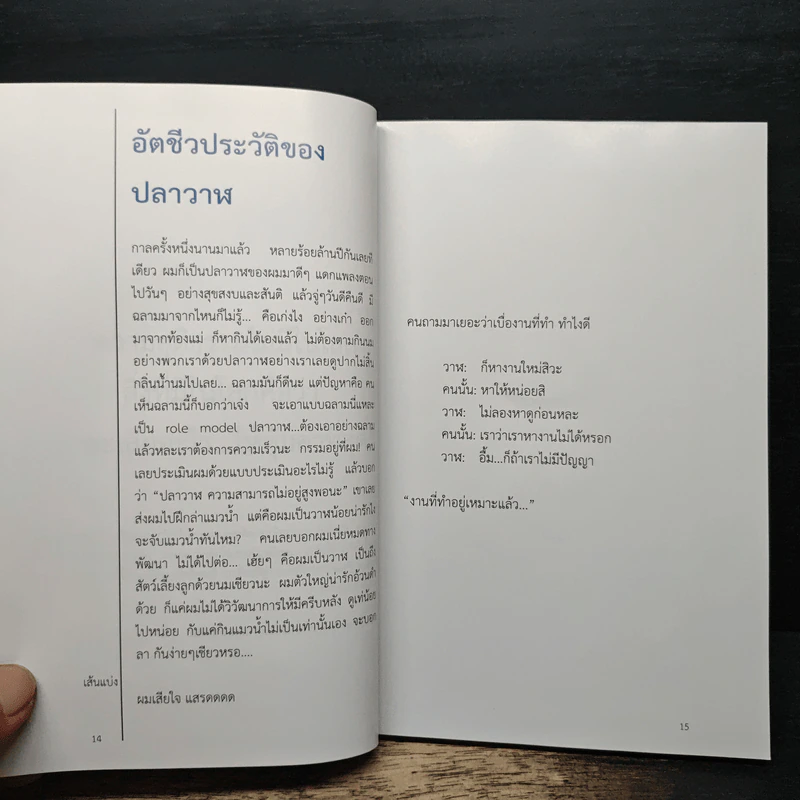 อัตชีวประวัติของ
ปลาวาฬ
กาลครั้งหนึ่งนานมาแล้ว หลายร้อยล้านปีกันเลยที
เดียว ผมก็เป็นปลาวาฬของผมมาดีๆ แดกแพลงตอน
ไปวันๆ อย่างสุขสงบและสันติ แล้วจู่ๆวันดีคืนดี มี
ฉลามมาจากไหนก็ไม่รู้... คือเก่งไง อย่างเก๋า ออก
มาจากท้องแม่ ก็หากินได้เองแล้ว ไม่ต้องตามกินนม
อย่างพวกเราด้วยปลาวาฬอย่างเราเลยดูปากไม่สิ้น
กลิ่นน้ำนมไปเลย... ฉลามมันก็ดีนะ แต่ปัญหาคือ คน
เห็นฉลามนี้ก็บอกว่าเจ๋ง จะเอาแบบฉลามนี่แหละ
เป็น role model ปลาวาฬ...ต้องเอาอย่างฉลาม
แล้วหละเราต้องการความเร็วนะ กรรมอยู่ที่ผม! คน
เลยประเมินผมด้วยแบบประเมินอะไรไม่รู้ แล้วบอก
ว่า “ปลาวาฬ ความสามารถไม่อยู่สูงพอนะ” เขาเลย
ส่งผมไปฝึกล่าแมวน้ำ แต่คือผมเป็นวาฬน้อยน่ารักไง
จะจับแมวน้ำทันไหม? คนเลยบอกผมเนี่ยหมดทาง
พัฒนา ไม่ได้ไปต่อ... เฮ้ยๆ คือผมเป็นวาฬ เป็นถึง
สัตว์เลี้ยงลูกด้วยนมเชียวนะ ผมตัวใหญ่น่ารักอ้วนดำ
ด้วย ก็แค่ผมไม่ได้วิวัฒนาการให้มีครีบหลัง ดูเท่น้อย
ไปหน่อย กับแค่กินแมวน้ำไม่เป็นเท่านั้นเอง จะบอก
ลา กันง่ายๆเชียวหรอ....
เส้นแบ่ง
ผมเสียใจ แสรดดดด
14
คนถามมาเยอะว่าเบื่องานที่ทำ ทำไงดี
วาฬ: ก็หางานใหม่สิวะ
คนนั้น: หาให้หน่อยสิ
วาฬ: ไม่ลองหาดูก่อนหละ
คนนั้น: เราว่าเราหางานไม่ได้หรอก
วาฬ: อื้ม...ก็ถ้าเราไม่มีปัญญา
“งานที่ทำอยู่เหมาะแล้ว...”
15